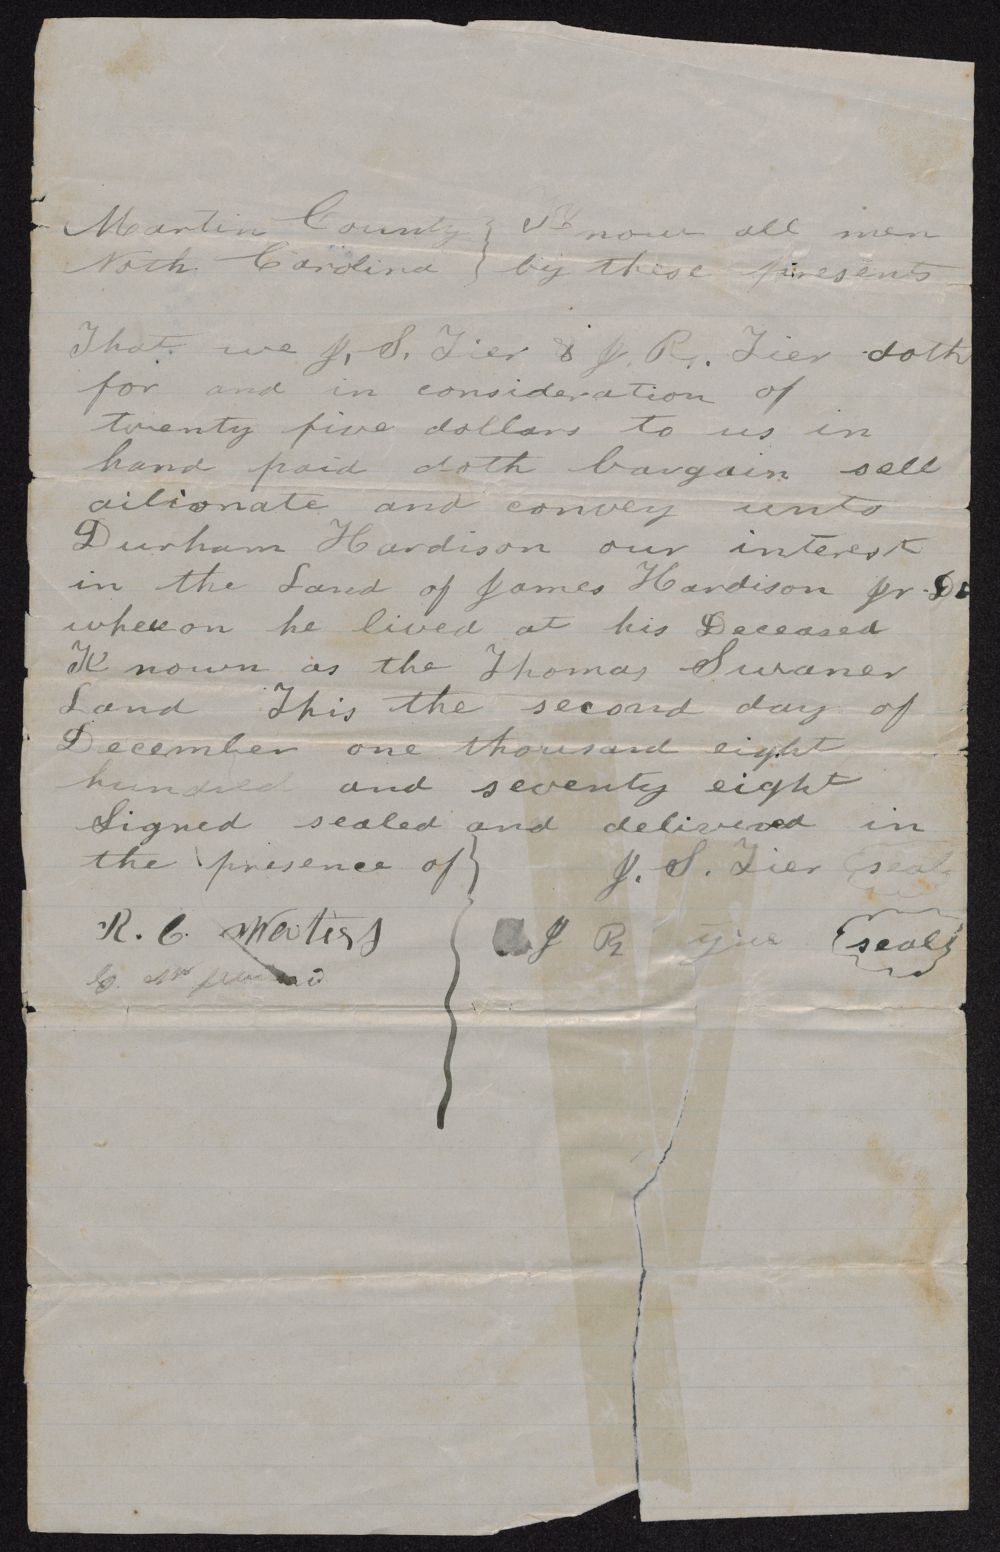 Martin County } Know all men
Noth Carolina } by these presents
That we J. S. Tier & J. R. Tier doth
for and in consideration of
twenty five dollars to us in
hand paid doth bargain sell
ailionate and convey unto
Durham Hardison our interest
in the Land of James Hardison Jr. De
wheeon he lived at his Deceased
Known as the Thomas Swaner
Land This the second day of
December one thousand eight
hundred and seventy eight
Signed sealed and delivered in
the presence of } J. S. Tier (seal)
R. C. Waters J R (seal)